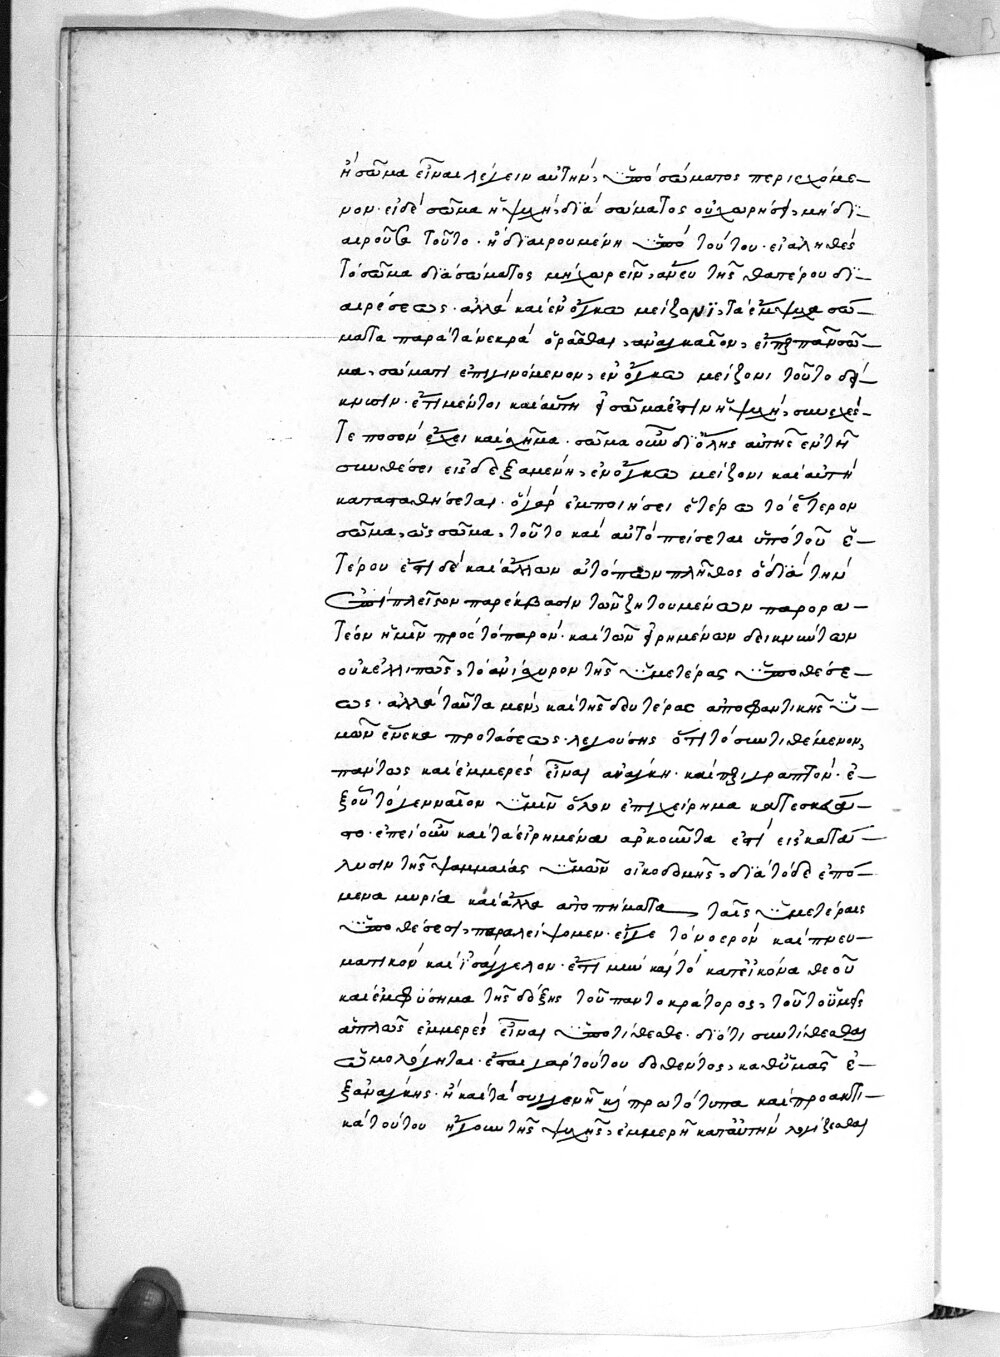 ἢ σῶμα εἶναι λέγειν αὐτὴν, ὑπὸ σώματος περιεχόμε-
νον· εἰ δὲ σῶμα ἡ ψυχὴ, διὰ σώματος οὐ χωρήσει, μὴ δι-
αιροῦσα τοῦτο· ἢ διαιρουμένη ὑπὸ τούτου· εἰ ἀληθὲς
τὸ σῶμα διὰ σώματος μὴ χωρεῖν, ἄνευ τῆς θατέρου δι-
αιρέσεως· ἀλλὰ καὶ ἐν ὄγκω μείζονι, τὰ ἔμψυχα σώ-
ματα παρὰ τὰ νεκρὰ ὁρᾶσθαι, ἀναγκαῖον, εἴπερ πᾶν σῶ-
μα, σώματι ἐπιγινόμενον, ἐν ὄγκω μείζονι τοῦτο δεί-
κνυσιν· ἔτι μέντοι καὶ αὕτη εἰ σῶμα ἐστὶν ἡ ψυχὴ, συνεχές
τε ποσὸν ἔχει καὶ σχῆμα· σῶμα οὖν δι' ὅλης αὐτῆς ἐν τῆ
συνθέσει εἰσδεξαμένη, ἐν ὄγκω μείζονι καὶ αὐτὴ
κατασταθήσεται· ὃ γὰρ ἐμποιήσει ἑτέρω τὸ ἕτερον
σῶμα, ὡς σῶμα, τοῦτο καὶ αὐτὸ πείσεται ὑπὸ τοῦ ἑ-
τέρου ἔτι δὲ καὶ ἄλλων ἀτόπων πλῆθος ὃ διὰ τὴν
ἐπὶ πλεῖστον παρέκβασιν τῶν ζητουμένων παρορα-
τέον ἡμῖν πρὸς τὸ παρὸν· καὶ τῶν εἰρημένων δεικνύντων
οὐκ ἐλλιπῶς, τὸ ἀνίσχυρον τῆς ὑμετέρας ὑποθέσε-
ως· ἀλλὰ ταῦτα μὲν, καὶ τῆς δευτέρας ἀποφαντικῆς ὑ-
μῶν ἕνεκα προτάσεως· λεγούσης ὅτι τὸ συντιθέμενον,
πάντως καὶ ἐμμερὲς εἶναι ἀνάγκη· καὶ περιγραπτόν· ἐ-
ξ οὗ τὸ γενναῖον ὑμῖν ὅλον ἐπιχείρημα κατεσκεύα-
στο· ἐπεὶ οὖν καὶ τὰ εἰρημένα ἀρκοῦντα ἐστὶ εἰς κατά-
λυσιν τῆς ψαμμαίας ὑμῶν οἰκοδομῆς, διὰ τόδε ἑπό-
μενα μυρία καὶ ἄλλα ἀτοπήματα ταῖς ὑμετέραις
ὑποθέσεσι, παραλείψομεν· εἴγε τὸ νοερὸν καὶ πνευ-
ματικὸν καὶ ἰσάγγελον· ἔτι μὴν καὶ τὸ κατ' εἰκόνα θεοῦ
καὶ ἐμφύσημα τῆς δόξης τοῦ παντοκράτορος, τοῦτο ὑμεῖς
ἁπλῶς ἐμμερὲς εἶναι ὑποτίθεσθε· διότι συντίθεσθαι
ὡμολόγηται· ἔσται γὰρ τούτου δοθέντος, καθ' ὑμᾶς ἐ-
ξ ἀνάγκης· ἢ καὶ τὰ συγγενῆ καὶ πρωτότυπα καὶ προακτι-
κὰ τούτου ἤγουν τῆς ψυχῆς, ἐμμερῆ κατ' αὐτὴν λογίζεσθαι